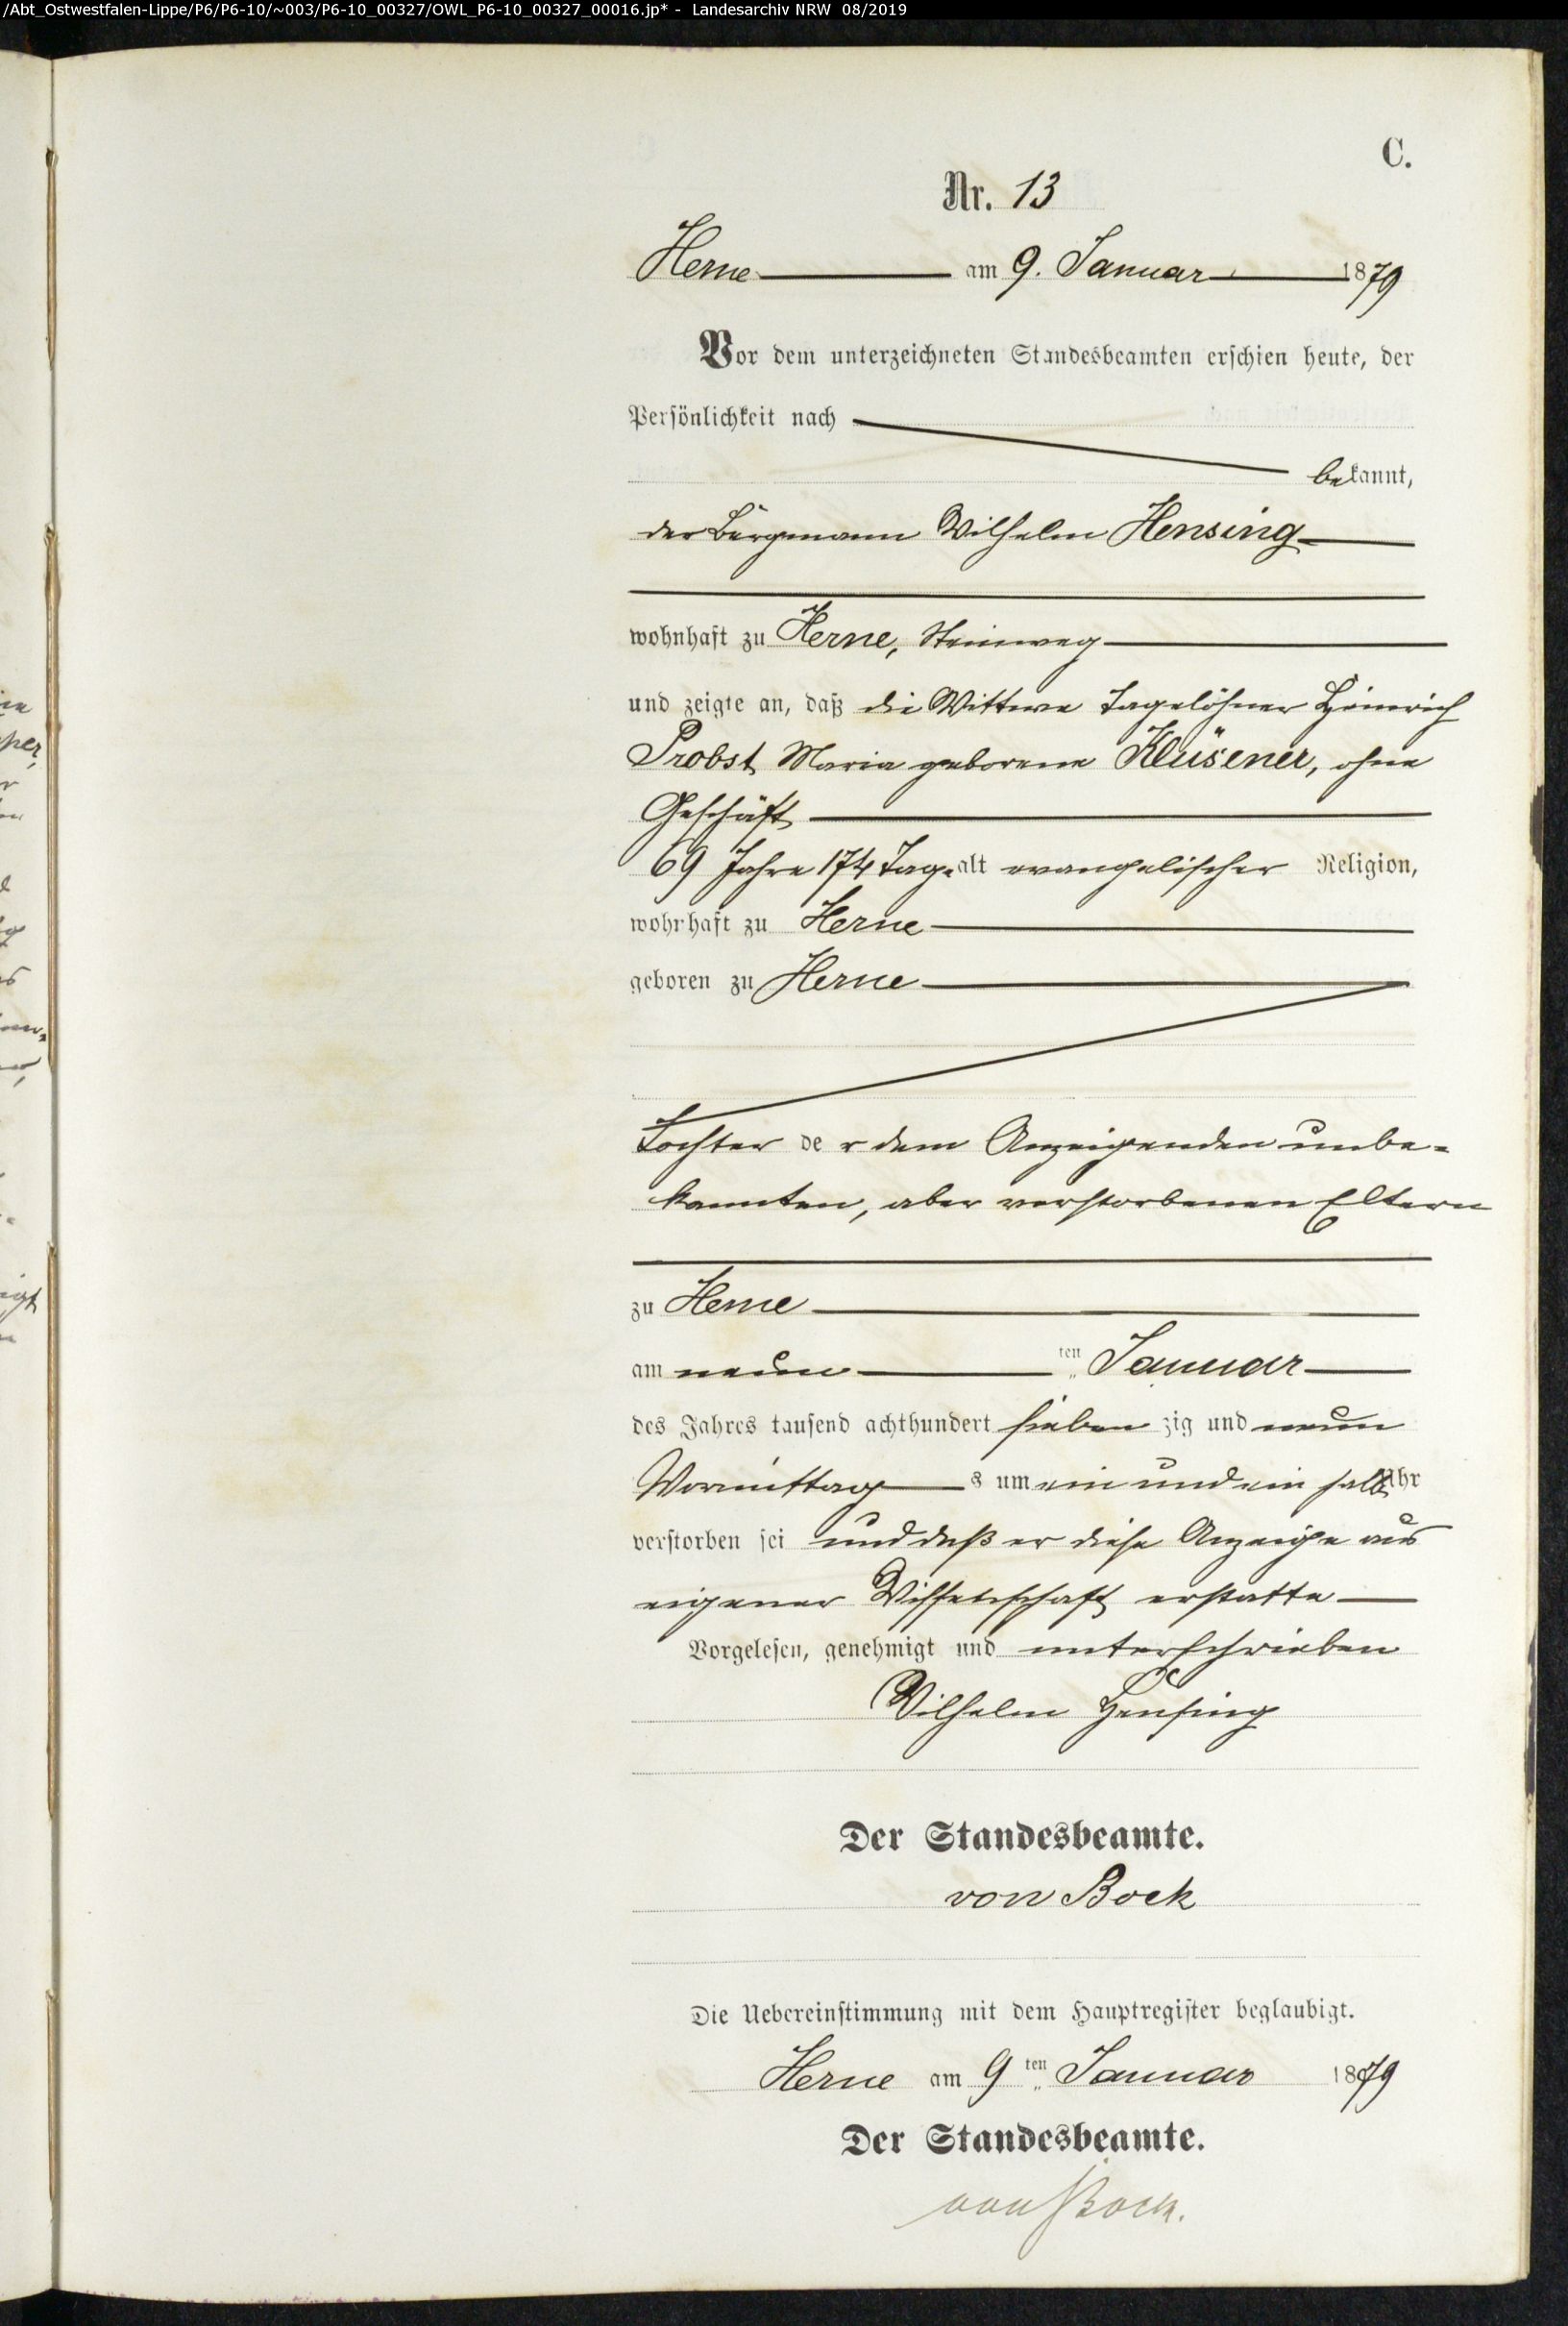 /Abt_Ostwestfalen-Lippe/P6/P6-10/~003/P6-10_00327/OWL_P6-10_00327_00016.jp* - Landesarchiv NRW 08/2019
C.
Nr. 13
Herne am 9. Januar 1879
Vor dem unterzeichneten Standesbeamten erschien heute, der
Persönlichkeit nach
bekannt,
der Bergmann Wilhelm Hensing
wohnhaft zu Herne, Steinweg
und zeigte an, daß die Wittwe Tagelöhner Heinrich
Probst Maria geborene Klüsener, ohne
Geschäft
69 Jahre 174 Tage alt evangelischer Religion,
wohnhaft zu Herne
geboren zu Herne
Tochter der dem Anzeigenden unbe-
kannten, aber verstorbenen Eltern
zu Herne
am neun ten Januar
des Jahres tausend achthundert siebenzig und neun
Vormittags um ein und ein halb Uhr
verstorben sei und daß er diese Anzeige aus
eigener Wissenschaft erstatte
Vorgelesen, genehmigt und unterschrieben
Wilhelm Hensing
Der Standesbeamte.
von Bock
Die Uebereinstimmung mit dem Hauptregister beglaubigt.
Herne am 9 ten Januar 1879
Der Standesbeamte.
von Bock.